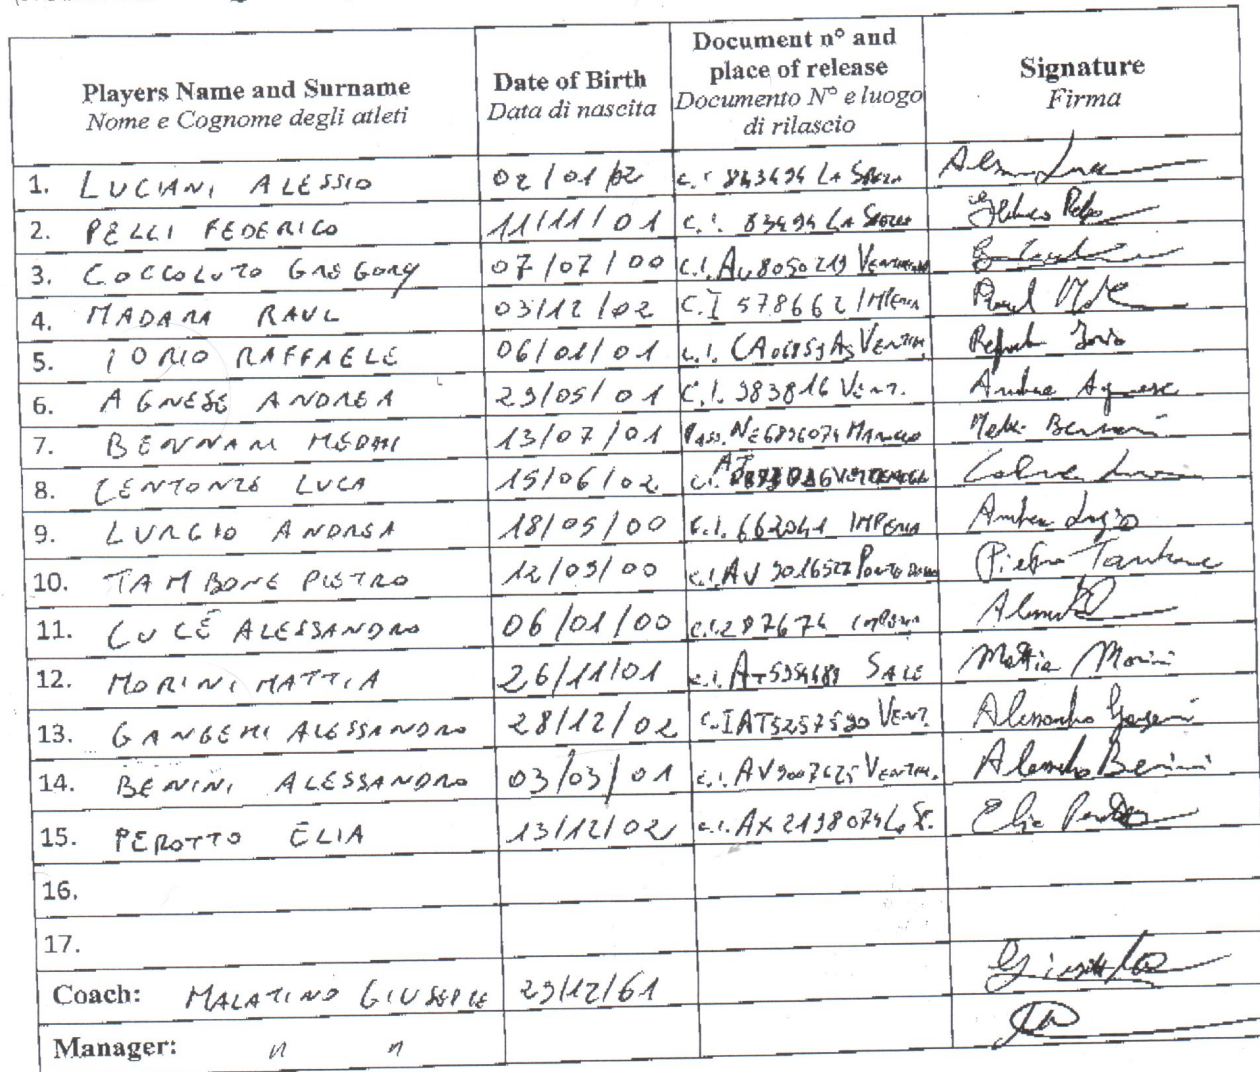 Players Name and Surname
Nome e Cognome degli atleti
Date of Birth
Data di nascita
Document n° and
place of release
Documento N° e luogo
di rilascio
Signature
Firma
1. LUCIANI ALESSIO 02/01/02 c.i. 843494 LA SPEZIA
2. PELLI FEDERICO 11/11/01 c.i. 83494 LA SPEZIA
3. COCCOLUTO GREGORY 07/07/00 C.I. AU8050219
4. MADARA RAUL 03/12/02 C.I 578662 IMPERIA
5. IORIO RAFFAELE 06/01/01 c.i. VENTIM. Raffaele Iorio
6. AGNESE ANDREA 29/05/01 C.I. 983816 VENT. Andrea Agnese
7. BENNANI MEDHI 13/07/01 PASS. Medhi Bennani
8. CENTONZE LUCA 15/06/02 c.i.
9. LURGIO ANDREA 18/05/00 C.I. 662041 IMPERIA Andrea
10. TAMBONE PIETRO 12/09/00 c.i. AV 9016522 Pietro Tambone
11. LUCÈ ALESSANDRO 06/01/00 c.i. 287674 IMPERIA
12. MORINI MATTIA 26/11/01 c.i. SALE Mattia Morini
13. GANGEMI ALESSANDRO 28/12/02 C.I AT5257590 VENT. Alessandro Gangemi
14. BENINI ALESSANDRO 03/03/01 c.i. AV9007625 VENTIM. Alessandro Benini
15. PEROTTO ELIA 13/12/02 c.i. AX 2198074 Elia Perotto
16.
17.
Coach: MALATINO GIUSEPPE 29/12/61
Manager: " "